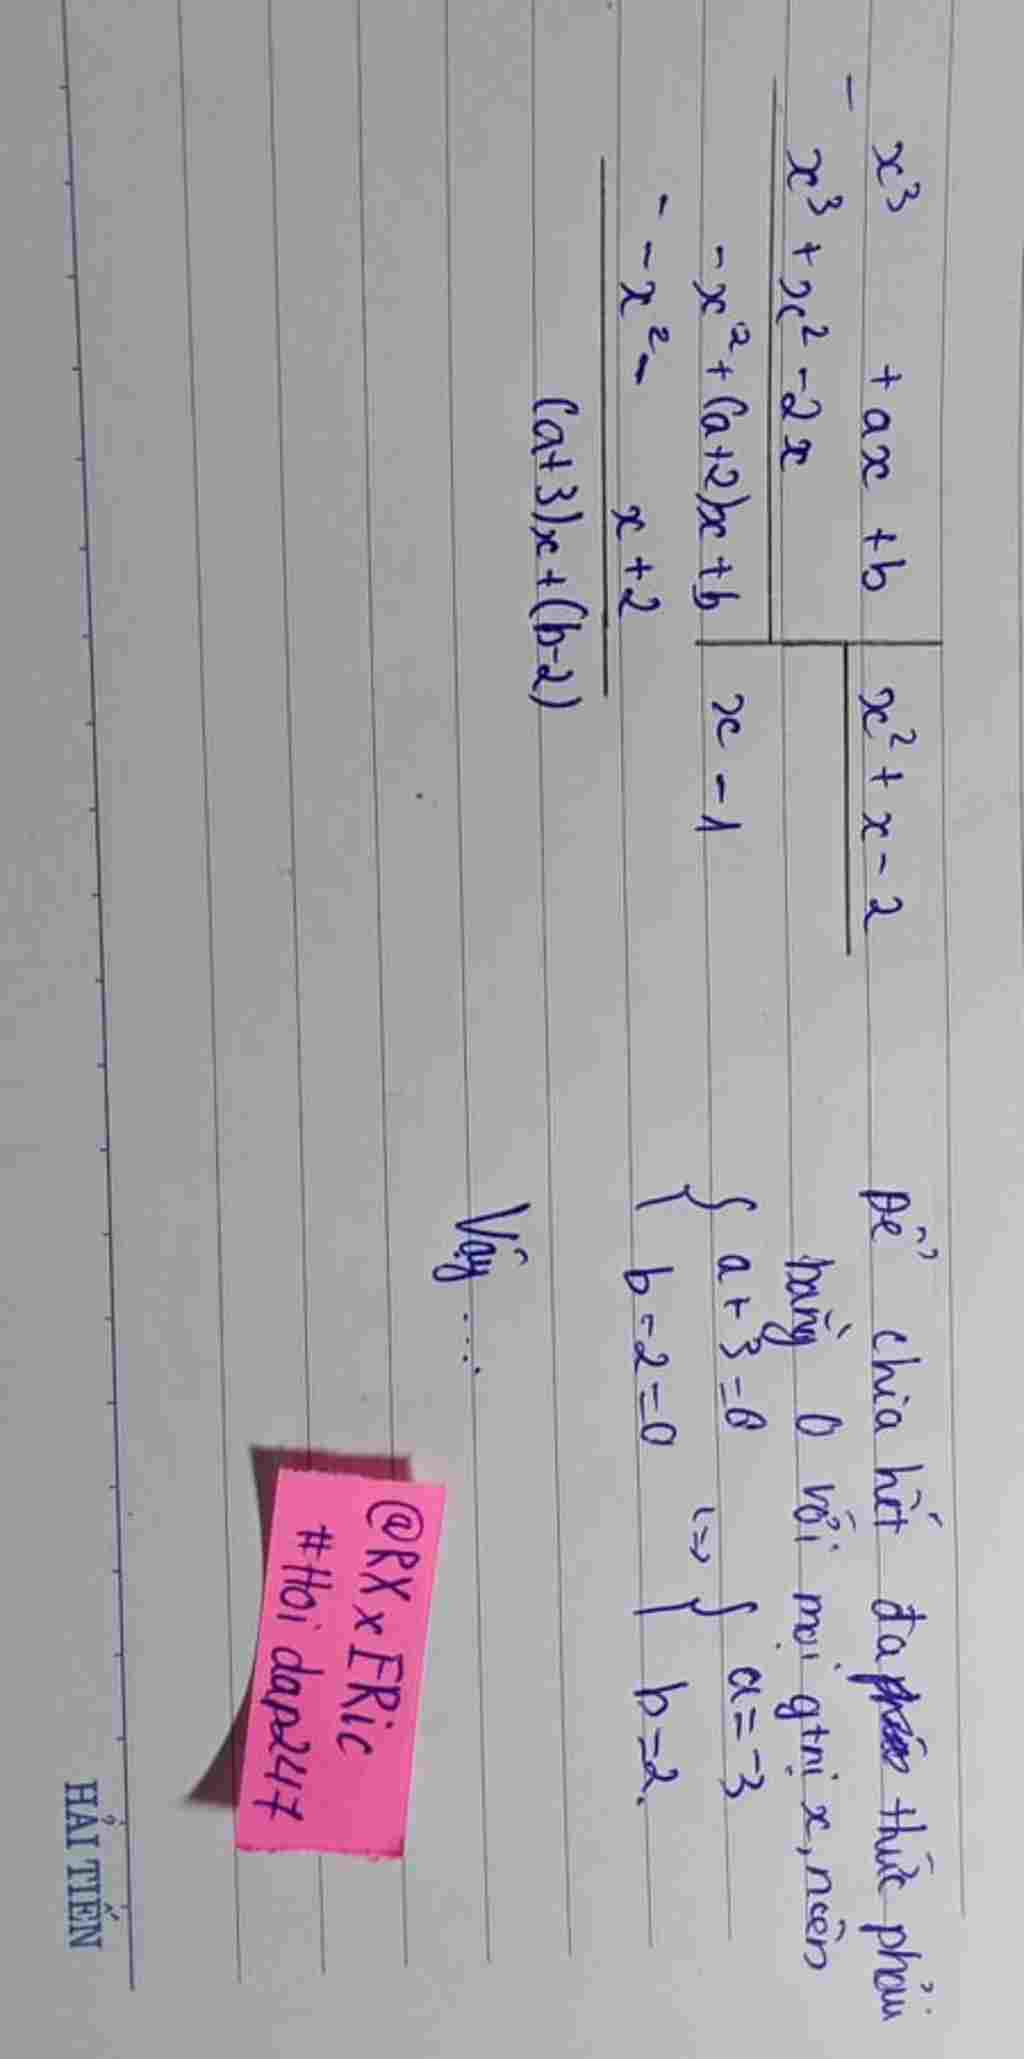 x³ + ax + b
x² + x - 2
-
x³ + x² - 2x
x - 1
- x² + (a+2)x + b
- - x² - x + 2
(a+3)x + (b-2)
Để chia hết đa thức phải
bằng 0 với mọi gtrị x, nên
{ a + 3 = 0 (=> { a = -3
b - 2 = 0 b = 2.
Vậy ....
@RXxERic
#Hoi dap247
HẢI TIẾN